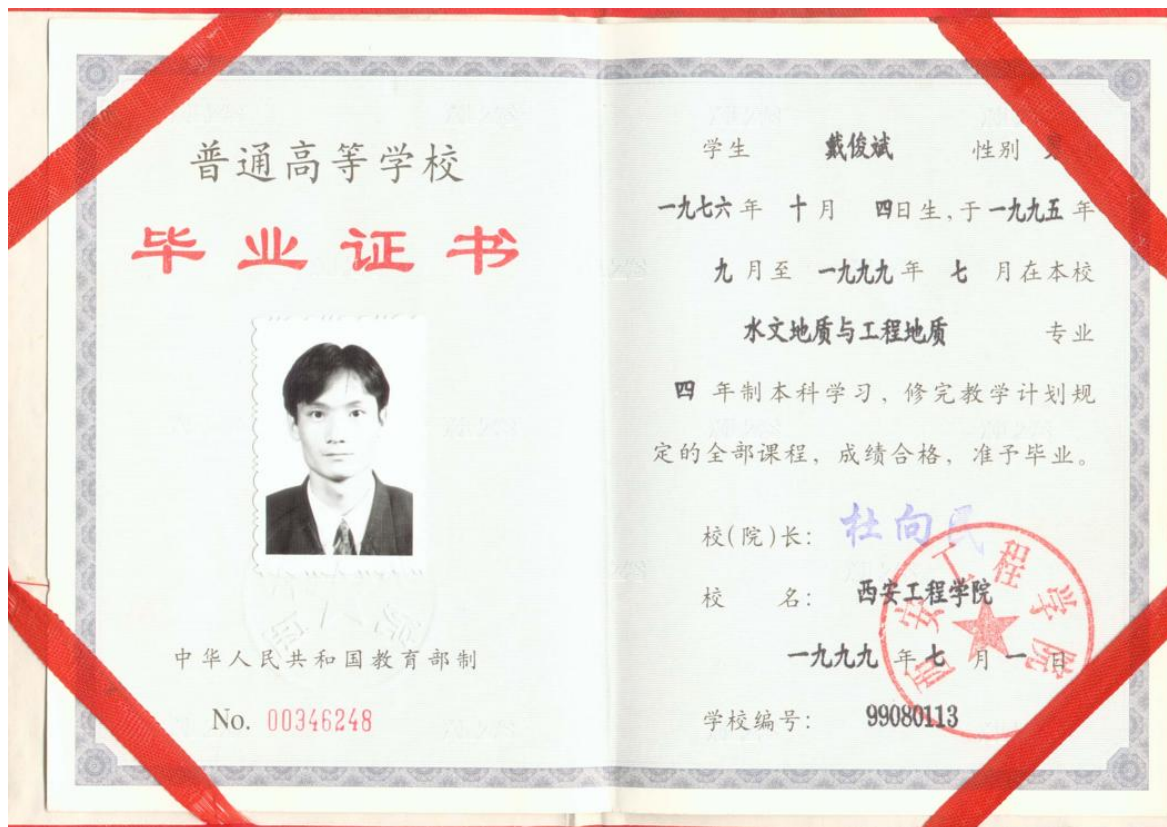 普通高等学校
毕业证书
中华人民共和国教育部制
No. 00346248
学生 戴俊斌 性别
一九七六年 十月 四日生,于一九九五年
九月至 一九九九年 七 月在本校
水文地质与工程地质 专业
四 年制本科学习，修完教学计划规
定的全部课程，成绩合格，准予毕业。
校(院)长: 杜向民
校 名: 西安工程学院
一九九九 年 七 月 一 日
学校编号: 99080113
西安工程学院